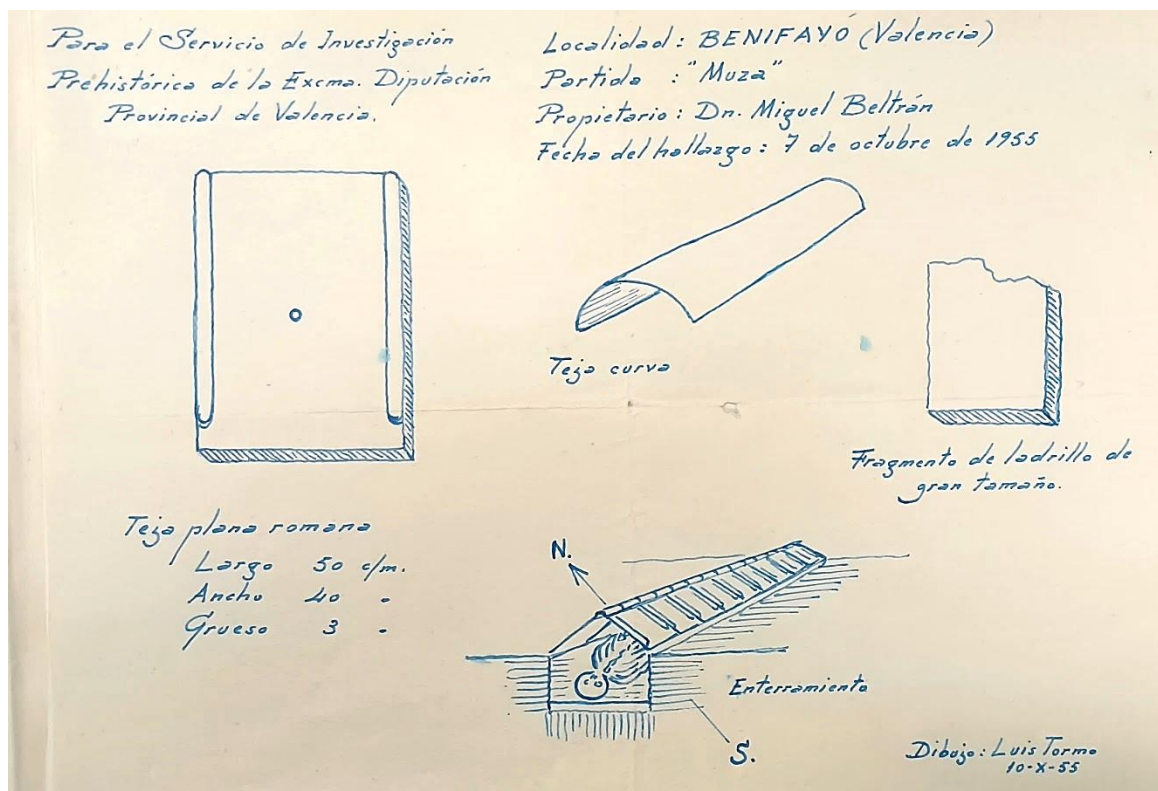 Para el Servicio de Investigación
Prehistórica de la Excma. Diputación
Provincial de Valencia.
Localidad: BENIFAYÓ (Valencia)
Partida : "Muza"
Propietario: Dn. Miguel Beltrán
Fecha del hallazgo: 7 de octubre de 1955
Teja curva
Fragmento de ladrillo de
gran tamaño.
Teja plana romana
Largo 50 c/m.
Ancho 40 -
Grueso 3 -
N.
Enterramiento
S.
Dibujo: Luis Tormo
10-X-55